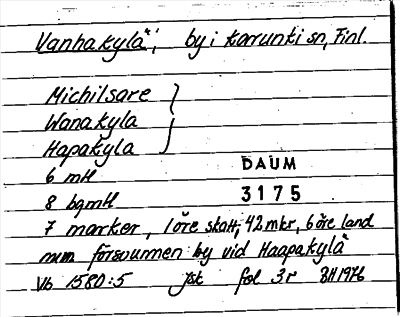 Vanhakylä", by i Karunki sn, Finl.
Michilsare
Wanakyla
Hapakyla
6 mtl
DAUM
8 bqmtl
3175
7 marker, 1 öre skatt, 42 mkr, 6 öre land
num försvunnen by vid Haapakylä
Vb 1580:5 jbk fol 3r BH 1976